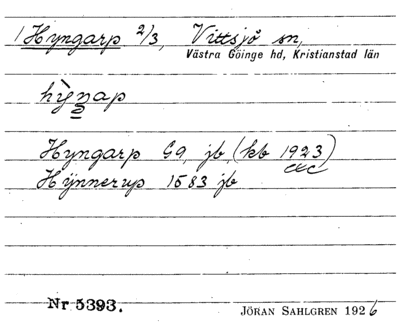 1 Hyngarp 2/3, Vittsjö sn,
Västra Göinge hd, Kristianstad län
Hyngarp G9, jb, (kb 1923)
Hÿnnerup 1583 jb
Nr 5393.
JÖRAN SAHLGREN 1926